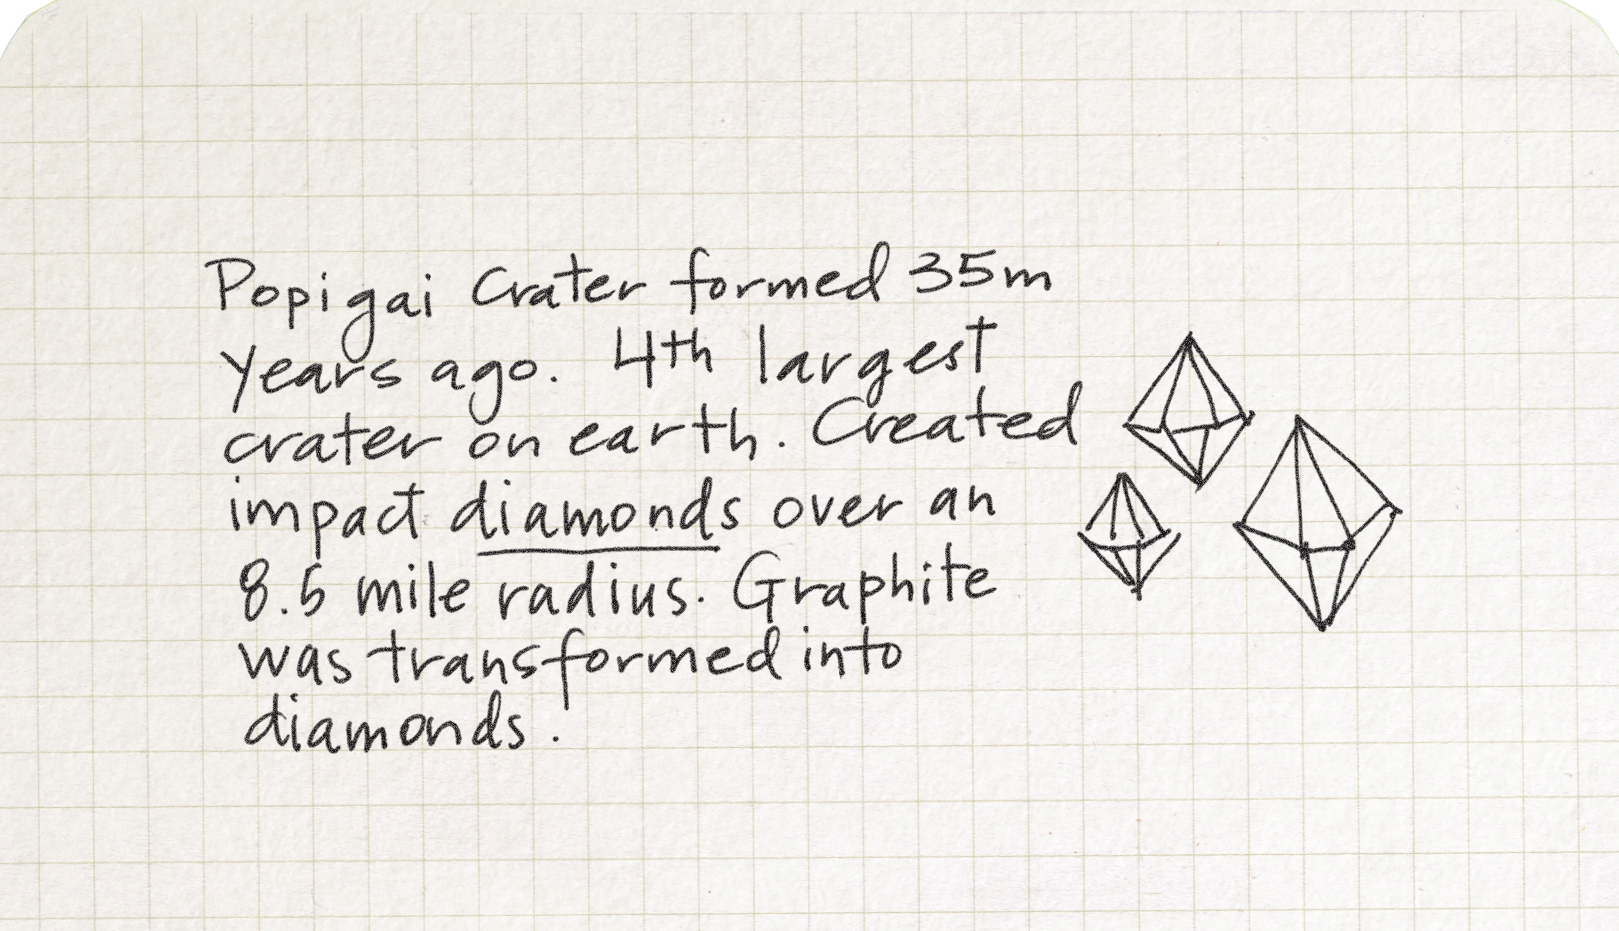 Popigai Crater formed 35m
years ago. 4th largest
crater on earth. Created
impact diamonds over an
8.5 mile radius. Graphite
was transformed into
diamonds.